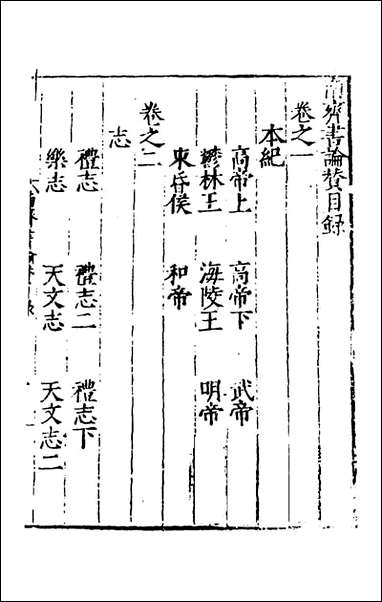 南齊書論贊目録
卷之一
本紀
高帝上 高帝下 武帝
鬱林王 海陵王 明帝
東昏侯 和帝
卷之二
志
禮志 禮志二 禮志下
樂志 天文志 天文志二